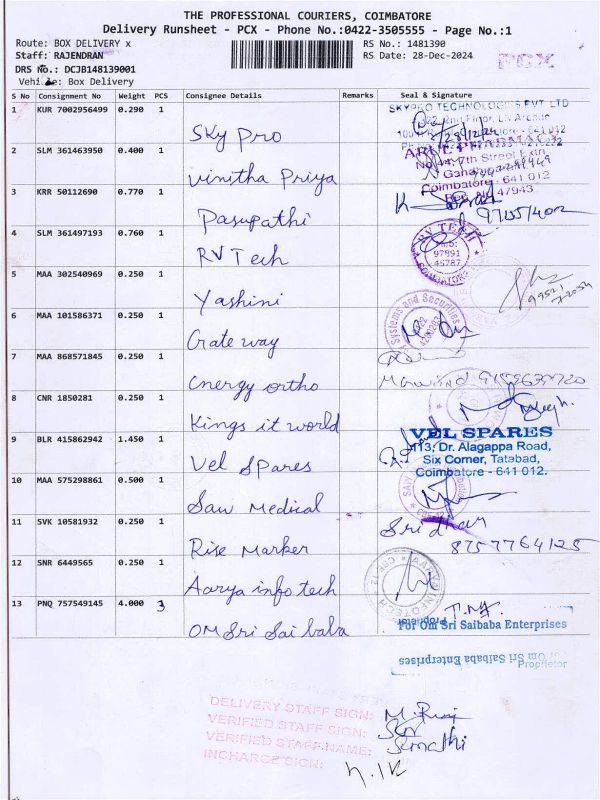 THE PROFESSIONAL COURIERS, COIMBATORE
Delivery Runsheet - PCX - Phone No.:0422-3505555 - Page No.:1
Route: BOX DELIVERY x
RS No.: 1481390
Staff: RAJENDRAN
RS Date: 28-Dec-2024
PCX
DRS No.: DCJB148139001
Vehicle: Box Delivery
S No Consignment No Weight PCS Consignee Details Remarks Seal & Signature
1 KUR 7002956499 0.290 1 Sky pro
SKYPRO TECHNOLOGIES PVT LTD
2 SLM 361463950 0.400 1 Vinitha Priya
No.44, 7th Street Extn.
Coimbatore - 641 012
3 KRR 50112690 0.770 1 Pasupathi
4 SLM 361497193 0.760 1 RV Tech
RV TECH
97891
45787
COIMBATORE
5 MAA 302540969 0.250 1 Yashini
6 MAA 101586371 0.250 1 Crate way
Systems and Securities
7 MAA 868571845 0.250 1 Energy ortho
8 CNR 1850281 0.250 1 Kings it world
9 BLR 415862942 1.450 1 Vel Spares
VEL SPARES
113, Dr. Alagappa Road,
Six Corner, Tatabad,
Coimbatore - 641 012.
10 MAA 575298861 0.500 1 Saw Medical
11 SVK 10581932 0.250 1 Rise Marker
Sridhar
8757764125
12 SNR 6449565 0.250 1 Aarya info tech
AARYA INFOTECH
13 PNQ 757549145 4.000 3 OM Sri Sai baba
For Om Sri Saibaba Enterprises
Proprietor
For Om Sri Saibaba Enterprises
Proprietor
DELIVERY STAFF SIGN:
VERIFIED STAFF SIGN:
VERIFIED STAFF NAME: Sumathi
INCHARGE SIGN: